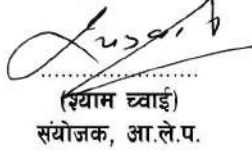 (श्याम च्वाई)
संयोजक, आ.ले.प.